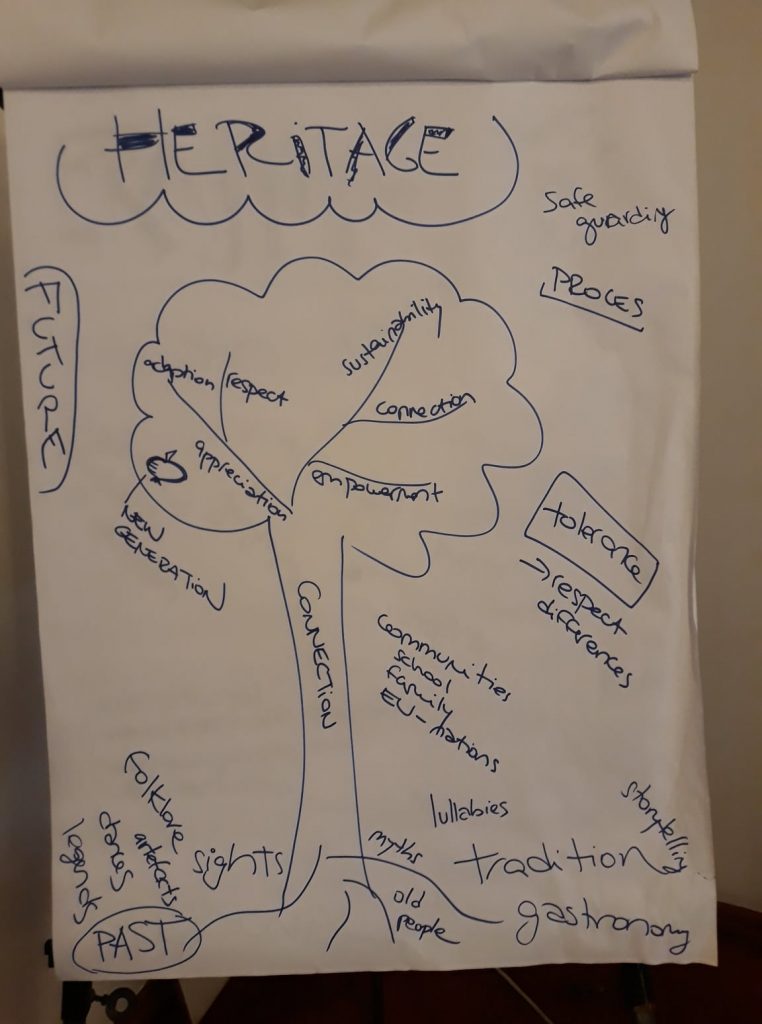 HERITAGE
Safe
guarding
PROCES
FUTURE
sustainability
adoption
respect
connection
appreciation
empowerment
NEW
GENERATION
tolerance
→ respect
differences
CONNECTION
communities
school
family
EU-nations
folklore
storytelling
lullabies
artefacts
legends
sights
myths
tradition
old
people
gastronomy
PAST